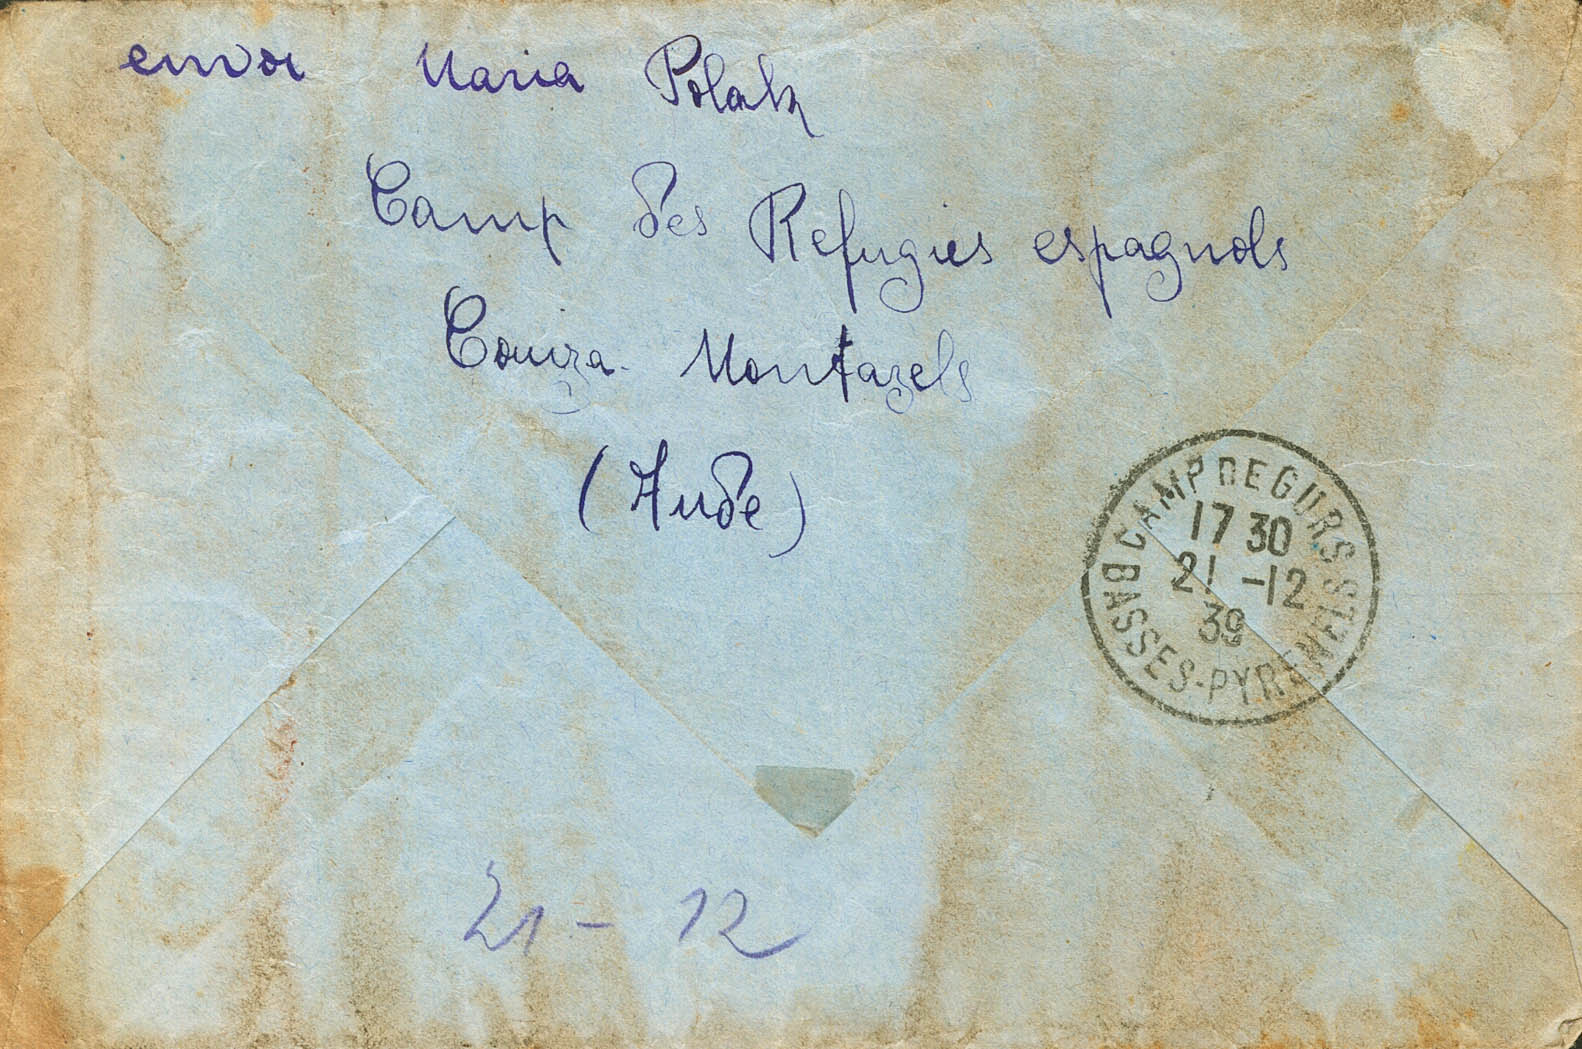 envoi Maria Polak
Camp des Refugies espagnols
Couiza. Montazels
(Aude)
CAMP DE GURS
17 30
21 -12
39
BASSES-PYRENEES
21 - 12